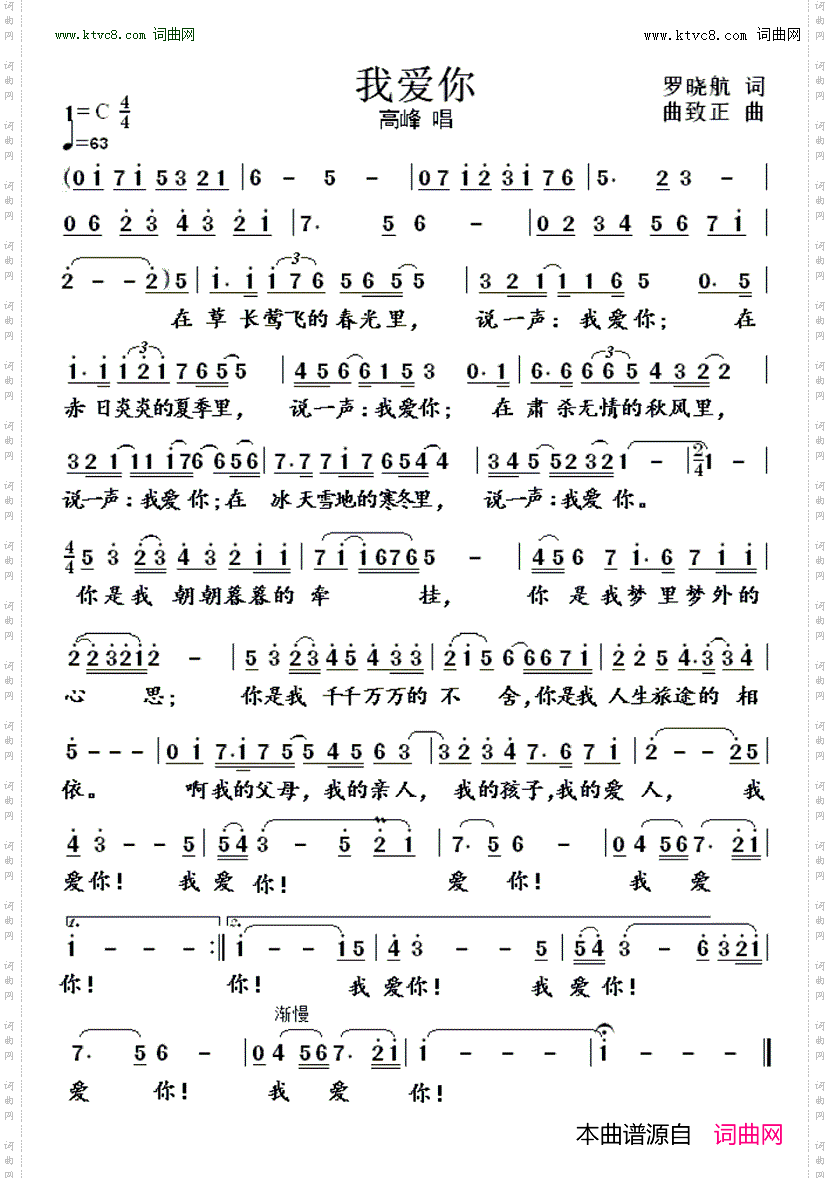 www.ktvc8.com 词曲网
www.ktvc8.com 词曲网
我爱你
罗晓航 词
1=C 4/4
高峰 唱
曲致正 曲
♩=63
(0 i 7 i 5 3 2 1 | 6 - 5 - | 0 7 i 2 3 i 7 6 | 5. 2 3 - |
0 6 2 3 4 3 2 i | 7. 5 6 - | 0 2 3 4 5 6 7 i |
2 - - 2) 5 | i. i i 7 6 5 6 5 5 | 3 2 1 1 1 6 5 0. 5 |
在 草 长 莺飞的 春光里， 说一声：我爱你； 在
i. i i 2 i 7 6 5 5 | 4 5 6 6 1 5 3 0. 1 | 6. 6 6 6 5 4 3 2 2 |
赤 日炎炎的夏季里， 说一声：我爱你； 在 肃 杀无情的秋风里，
3 2 1 1 1 i 7 6 6 5 6 | 7. 7 7 i 7 6 5 4 4 | 3 4 5 5 5 2 3 2 1 - | 2/4 1 - |
说一声：我爱 你；在 冰 天雪地的寒冬里， 说一声：我爱 你。
4/4 5 3 2 3 4 3 2 i i | 7 i i 6 7 6 5 - | 4 5 6 7 i. 6 7 i i |
你是我 朝朝暮暮的 牵 挂， 你 是 我梦里梦外的
2 2 3 2 i 2 - | 5 3 2 3 4 5 4 3 3 | 2 i 5 6 6 6 7 i | 2 2 5 4. 3 3 4 |
心 思； 你是我 千千万万的 不 舍，你是我 人生旅途的 相
5 - - - | 0 i 7. i 7 5 5 5 4 5 6 3 | 3 2 3 4 7. 6 6 7 i | 2 - - 2 5 |
依。 啊我的父母，我的亲人， 我的孩子，我的爱 人， 我
4 3 - - 5 | 5 4 3 - 5 2 i | 7. 5 6 - | 0 4 5 6 7. 2 i |
爱你！ 我 爱 你！ 爱 你！ 我 爱
1. 2.
i - - - :‖ i - - i 5 | 4 3 - - 5 | 5 4 3 - 6 3 2 i |
你！ 你！ 我 爱你！ 我 爱 你！
渐慢
7. 5 6 - | 0 4 5 6 7. 2 i | i - - - | i - - - ‖
爱 你！ 我 爱 你！
本曲谱源自 词曲网